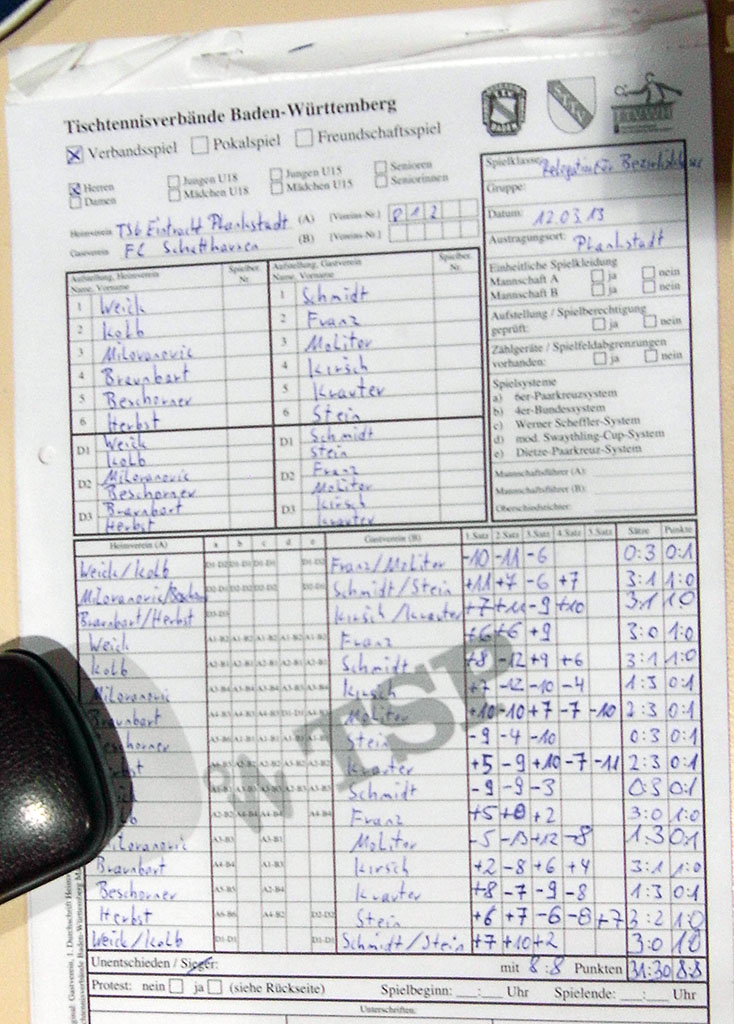 Tischtennisverbände Baden-Württemberg
Verbandsspiel Pokalspiel Freundschaftsspiel
Herren Jungen U18 Jungen U15 Senioren
Damen Mädchen U18 Mädchen U15 Seniorinnen
Heimverein TSG Eintracht Plankstadt (A) [Vereins-Nr.] 012
Gastverein FC Schatthausen (B) [Vereins-Nr.]
Spielklasse: Relegation für Bezirksklasse
Gruppe:
Datum: 12.03.13
Austragungsort: Plankstadt
Einheitliche Spielkleidung
Mannschaft A ja nein
Mannschaft B ja nein
Aufstellung / Spielberechtigung
geprüft: ja nein
Zählgeräte / Spielfeldabgrenzungen
vorhanden: ja nein
Spielsysteme
a) 6er-Paarkreuzsystem
b) 4er-Bundessystem
c) Werner Scheffler-System
d) mod. Swaythling-Cup-System
e) Dietze-Paarkreuz-System
Mannschaftsführer (A):
Mannschaftsführer (B):
Oberschiedsrichter:
Aufstellung, Heimverein Spielber. Aufstellung, Gastverein Spielber.
Name, Vorname Nr. Name, Vorname Nr.
1 Weick 1 Schmidt
2 Kolb 2 Franz
3 Milovanovic 3 Molitor
4 Braunbart 4 Kirsch
5 Beschorner 5 Krauter
6 Herbst 6 Stein
D1 Weick D1 Schmidt
Kolb Stein
D2 Milovanovic D2 Franz
Beschorner Molitor
D3 Braunbart D3 Kirsch
Herbst Krauter
Heimverein (A) a b c d e Gastverein (B) 1.Satz 2.Satz 3.Satz 4.Satz 5.Satz Sätze Punkte
Weick/Kolb D1-D2 D1-D2 D1-D1 D1-D2 Franz/Molitor -10 -11 -6 0:3 0:1
Milovanovic/ D2-D1 D2-D1 D2-D2 D2-D1 Schmidt/Stein +11 +7 -6 +7 3:1 1:0
Braunbart/Herbst D3-D3 Kirsch/Krauter +7 +11 -9 +10 3:1 1:0
Weick A1-B2 A1-B2 A1-B2 A1-B2 A1-B2 Franz +6 +6 +9 3:0 1:0
Kolb A2-B1 A2-B1 A2-B1 A2-B1 A2-B1 Schmidt +8 -12 +9 +6 3:1 1:0
Milovanovic A3-B4 A3-B4 Kirsch +7 -12 -10 -4 1:3 0:1
Braunbart A4-B3 Molitor +10 -10 +7 -7 -10 2:3 0:1
eschorner Stein -9 -4 -10 0:3 0:1
bst Krauter +5 -9 +10 -7 -11 2:3 0:1
Schmidt -9 -9 -3 0:3 0:1
b A2-B2 Franz +5 +8 +2 3:0 1:0
ilovanovic A3-B3 A3-B1 Molitor -5 -13 +12 -8 1:3 0:1
Braunbart A4-B4 A1-B3 Kirsch +2 -8 +6 +4 3:1 1:0
Beschorner A5-B5 A2-B4 Krauter +8 -7 -9 -8 1:3 0:1
Herbst A6-B6 A4-B2 D2-D2 Stein +6 +7 -6 -8 +7 3:2 1:0
Weick/Kolb D1-D1 D1-D1 Schmidt/Stein +7 +10 +2 3:0 1:0
Unentschieden / Sieger: mit 8:8 Punkten 31:30 8:8
Protest: nein ja (siehe Rückseite) Spielbeginn: __:__ Uhr Spielende: __:__ Uhr
Unterschriften:
TSP